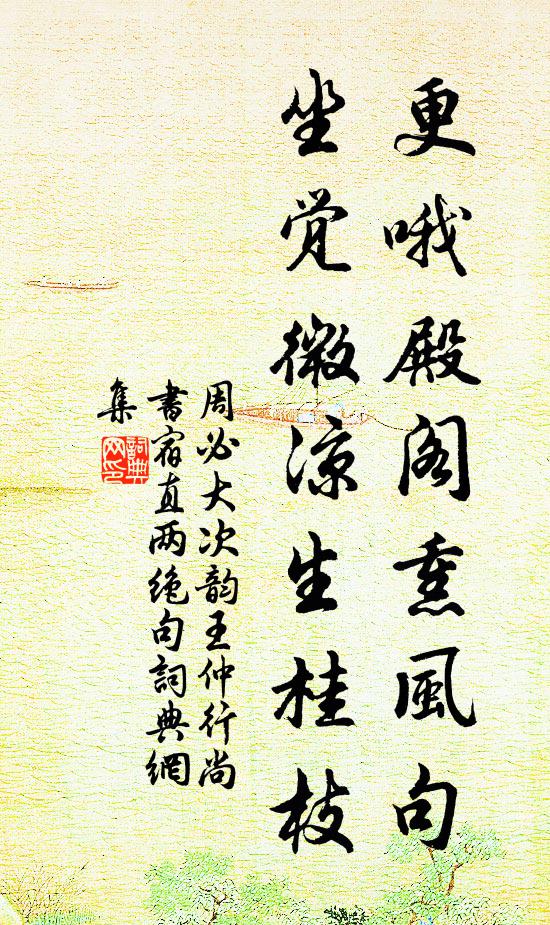 更哦殿阁熏風句
坐觉微凉生桂枝
周必大次韵王仲行尚
書宿直两绝句詞典網
集
詞典
网印